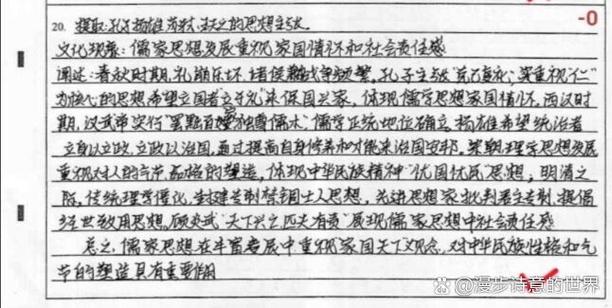 -0
20. 提取:孔子 杨雄 苏轼 顾炎武的思想主张.
文化现象:儒家思想发展重视家国情怀和社会责任感
阐述:春秋时期,礼崩乐坏,诸侯战争频繁,孔子主张"克己复礼",实重视"仁"
为核心的思想希望立国者立于礼来保国兴家,体现儒学思想家国情怀.西汉时
期,汉武帝实行"罢黜百家独尊儒术",儒学正统地位确立,杨雄希望统治者
立身以立政,立政以治国,通过提高自身修养和才能来治国安邦,宋朝理学思想发展
重视对人的气节、品格的塑造,体现中华民族精神"忧国忧民"思想,明清之
际,传统理学僵化,封建专制禁锢士人思想,先进思想家批判君主专制,提倡
经世致用思想,顾炎武"天下兴亡,匹夫有责"展现儒家思想中社会责任感
总之,儒家思想在丰富发展中重视家国天下观念,对中华民族性格和气
节的塑造具有重要作用
@漫步诗意的世界